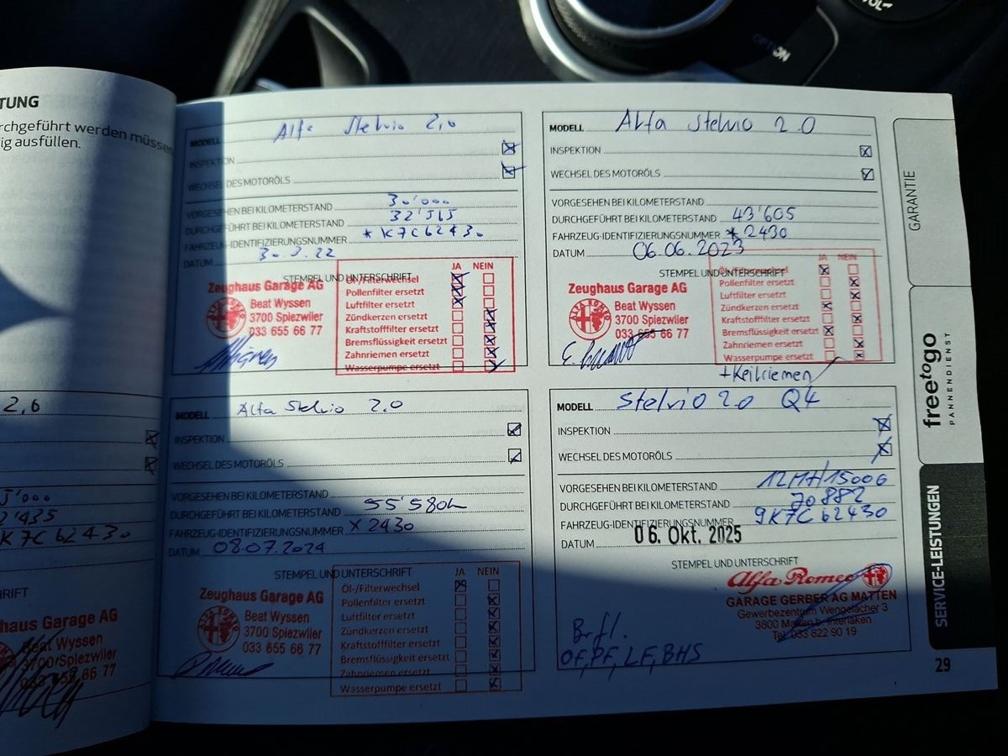 OPTION
VOL-
TUNG
rchgeführt werden müssen
ig ausfüllen.
2,6
5'000
2'435
K7C62430
RIFT
haus Garage AG
Beat Wyssen
3700 Spiezwiler
033 655 66 77
MODELL Alfa Stelvio 2,0
INSPEKTION
WECHSEL DES MOTORÖLS
VORGESEHEN BEI KILOMETERSTAND 30'000
DURCHGEFÜHRT BEI KILOMETERSTAND 32'515
FAHRZEUG-IDENTIFIZIERUNGSNUMMER *K7C62430
DATUM 30.3.22
STEMPEL UND UNTERSCHRIFT
Zeughaus Garage AG
Beat Wyssen
3700 Spiezwiler
033 655 66 77
JA NEIN
Öl-/Filterwechsel
Pollenfilter ersetzt
Luftfilter ersetzt
Zündkerzen ersetzt
Kraftstofffilter ersetzt
Bremsflüssigkeit ersetzt
Zahnriemen ersetzt
Wasserpumpe ersetzt
MODELL Alfa Stelvio 2.0
INSPEKTION
WECHSEL DES MOTORÖLS
VORGESEHEN BEI KILOMETERSTAND
DURCHGEFÜHRT BEI KILOMETERSTAND 43'605
FAHRZEUG-IDENTIFIZIERUNGSNUMMER *2430
DATUM 06.06.2023
STEMPEL UND UNTERSCHRIFT
Zeughaus Garage AG
Beat Wyssen
3700 Spiezwiler
033 655 66 77
JA NEIN
Öl-/Filterwechsel
Pollenfilter ersetzt
Luftfilter ersetzt
Zündkerzen ersetzt
Kraftstofffilter ersetzt
Bremsflüssigkeit ersetzt
Zahnriemen ersetzt
Wasserpumpe ersetzt
+Keilriemen
Alfa Stelvio 2.0
INSPEKTION
WECHSEL DES MOTORÖLS
VORGESEHEN BEI KILOMETERSTAND
DURCHGEFÜHRT BEI KILOMETERSTAND 55'580
FAHRZEUG-IDENTIFIZIERUNGSNUMMER X2430
DATUM 08.07.2024
STEMPEL UND UNTERSCHRIFT
Zeughaus Garage AG
Beat Wyssen
3700 Spiezwiler
033 655 66 77
JA NEIN
Öl-/Filterwechsel
Pollenfilter ersetzt
Luftfilter ersetzt
Zündkerzen ersetzt
Kraftstofffilter ersetzt
Bremsflüssigkeit ersetzt
Zahnriemen ersetzt
Wasserpumpe ersetzt
MODELL Stelvio 2.0 Q4
INSPEKTION
WECHSEL DES MOTORÖLS
VORGESEHEN BEI KILOMETERSTAND
DURCHGEFÜHRT BEI KILOMETERSTAND 70882
FAHRZEUG-IDENTIFIZIERUNGSNUMMER 9K7C62430
DATUM 06. Okt. 2025
STEMPEL UND UNTERSCHRIFT
Alfa Romeo
GARAGE GERBER AG MATTEN
Gewerbezentrum Wengelacher 3
3800 Matten b. Interlaken
Tel. 033 822 90 19
Br.fl.
OF,PF,LF,BHS
GARANTIE
freetogo
PANNENDIENST
SERVICE-LEISTUNGEN
29